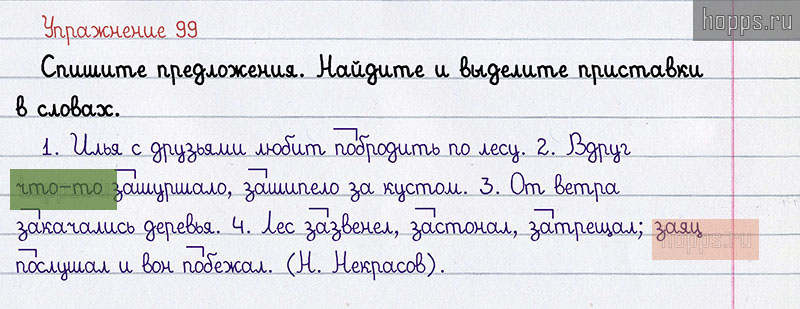 hopps.ru
Упражнение 99
Спишите предложения. Найдите и выделите приставки
в словах.
1. Илья с друзьями любит побродить по лесу. 2. Вдруг
что-то зашуршало, зашипело за кустом. 3. От ветра
закачались деревья. 4. Лес зазвенел, застонал, затрещал; заяц
hopps.ru
послушал и вон побежал. (Н. Некрасов).